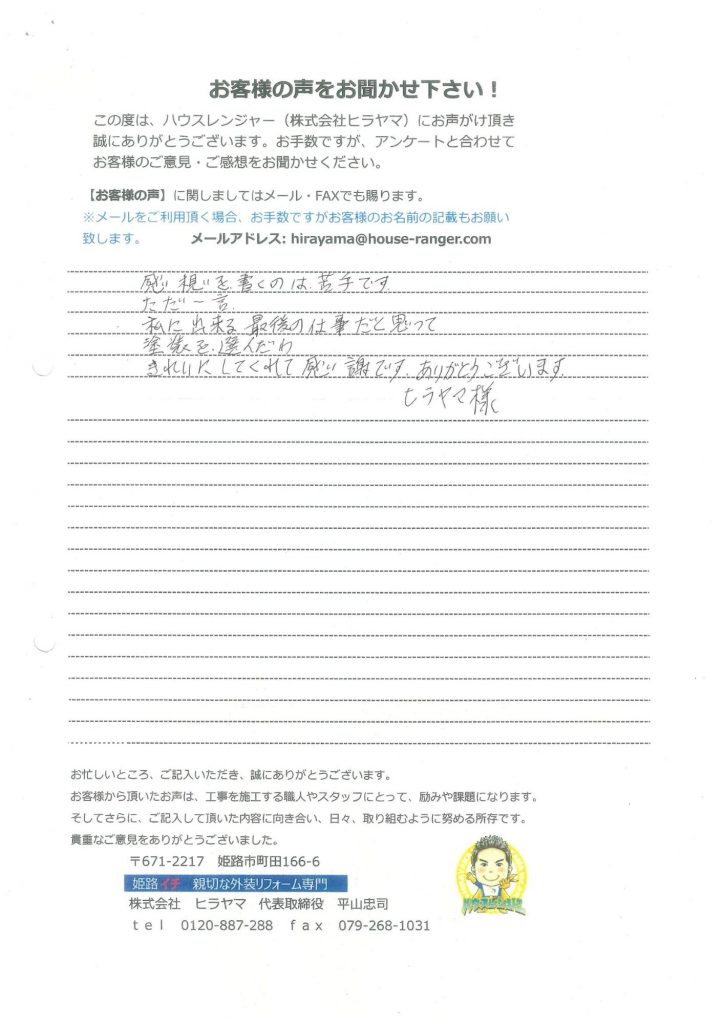 お客様の声をお聞かせ下さい！
この度は、ハウスレンジャー（株式会社ヒラヤマ）にお声がけ頂き
誠にありがとうございます。お手数ですが、アンケートと合わせて
お客様のご意見・ご感想をお聞かせください。
【お客様の声】に関しましてはメール・FAXでも賜ります。
※メールをご利用頂く場合、お手数ですがお客様のお名前の記載もお願い
致します。 メールアドレス: hirayama@house-ranger.com
感想を書くのは苦手です
ただ一言
私に出来る最後の仕事だと思って
塗装を選んだわ
きれいにしてくれて感謝です。ありがとうございます。
ヒラヤマ様
お忙しいところ、ご記入いただき、誠にありがとうございます。
お客様から頂いたお声は、工事を施工する職人やスタッフにとって、励みや課題になります。
そしてさらに、ご記入して頂いた内容に向き合い、日々、取り組むように努める所存です。
貴重なご意見をありがとうございました。
〒671-2217 姫路市町田166-6
姫路イチ 親切な外装リフォーム専門
株式会社 ヒラヤマ 代表取締役 平山忠司
ｔｅｌ 0120-887-288 ｆａｘ 079-268-1031
ハウスレンジャー